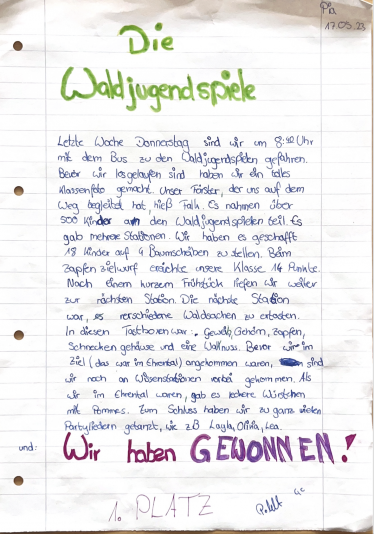 Pia
17.05.23
Die
Waldjugendspiele
Letzte Woche Donnerstag sind wir um 8:40 Uhr
mit dem Bus zu den Waldjugendspielen gefahren.
Bevor wir losgelaufen sind haben wir ein tolles
Klassenfoto gemacht. Unser Förster, der uns auf dem
Weg begleitet hat, hieß Falk. Es nahmen über
500 Kinder an den Waldjugendspielen teil. Es
gab mehrere Stationen. Wir haben es geschafft
18 Kinder auf 4 Baumscheiben zu stellen. Beim
Zapfenzielwurf erreichte unsere Klasse 14 Punkte.
Nach einem kurzem Frühstück liefen wir weiter
zur nächsten Station. Die nächste Station
war, es verschiedene Waldsachen zu ertasten.
In diesen Tastboxen war: Geweih, Gehörn, Zapfen,
Schnecken gehäuse und eine Wallnuss. Bevor wir im
Ziel (das war im Ehrental) angekommen waren, sind
wir noch an Wissenstationen vorbei gekommen. Als
wir im Ehrental waren, gab es leckere Würstchen
mit Pommes. Zum Schluss haben wir zu ganz vielen
Partyliedern getanzt, wie zB Layla, Olivia, Lea.
und: Wir haben GEWONNEN!
1. PLATZ
4c